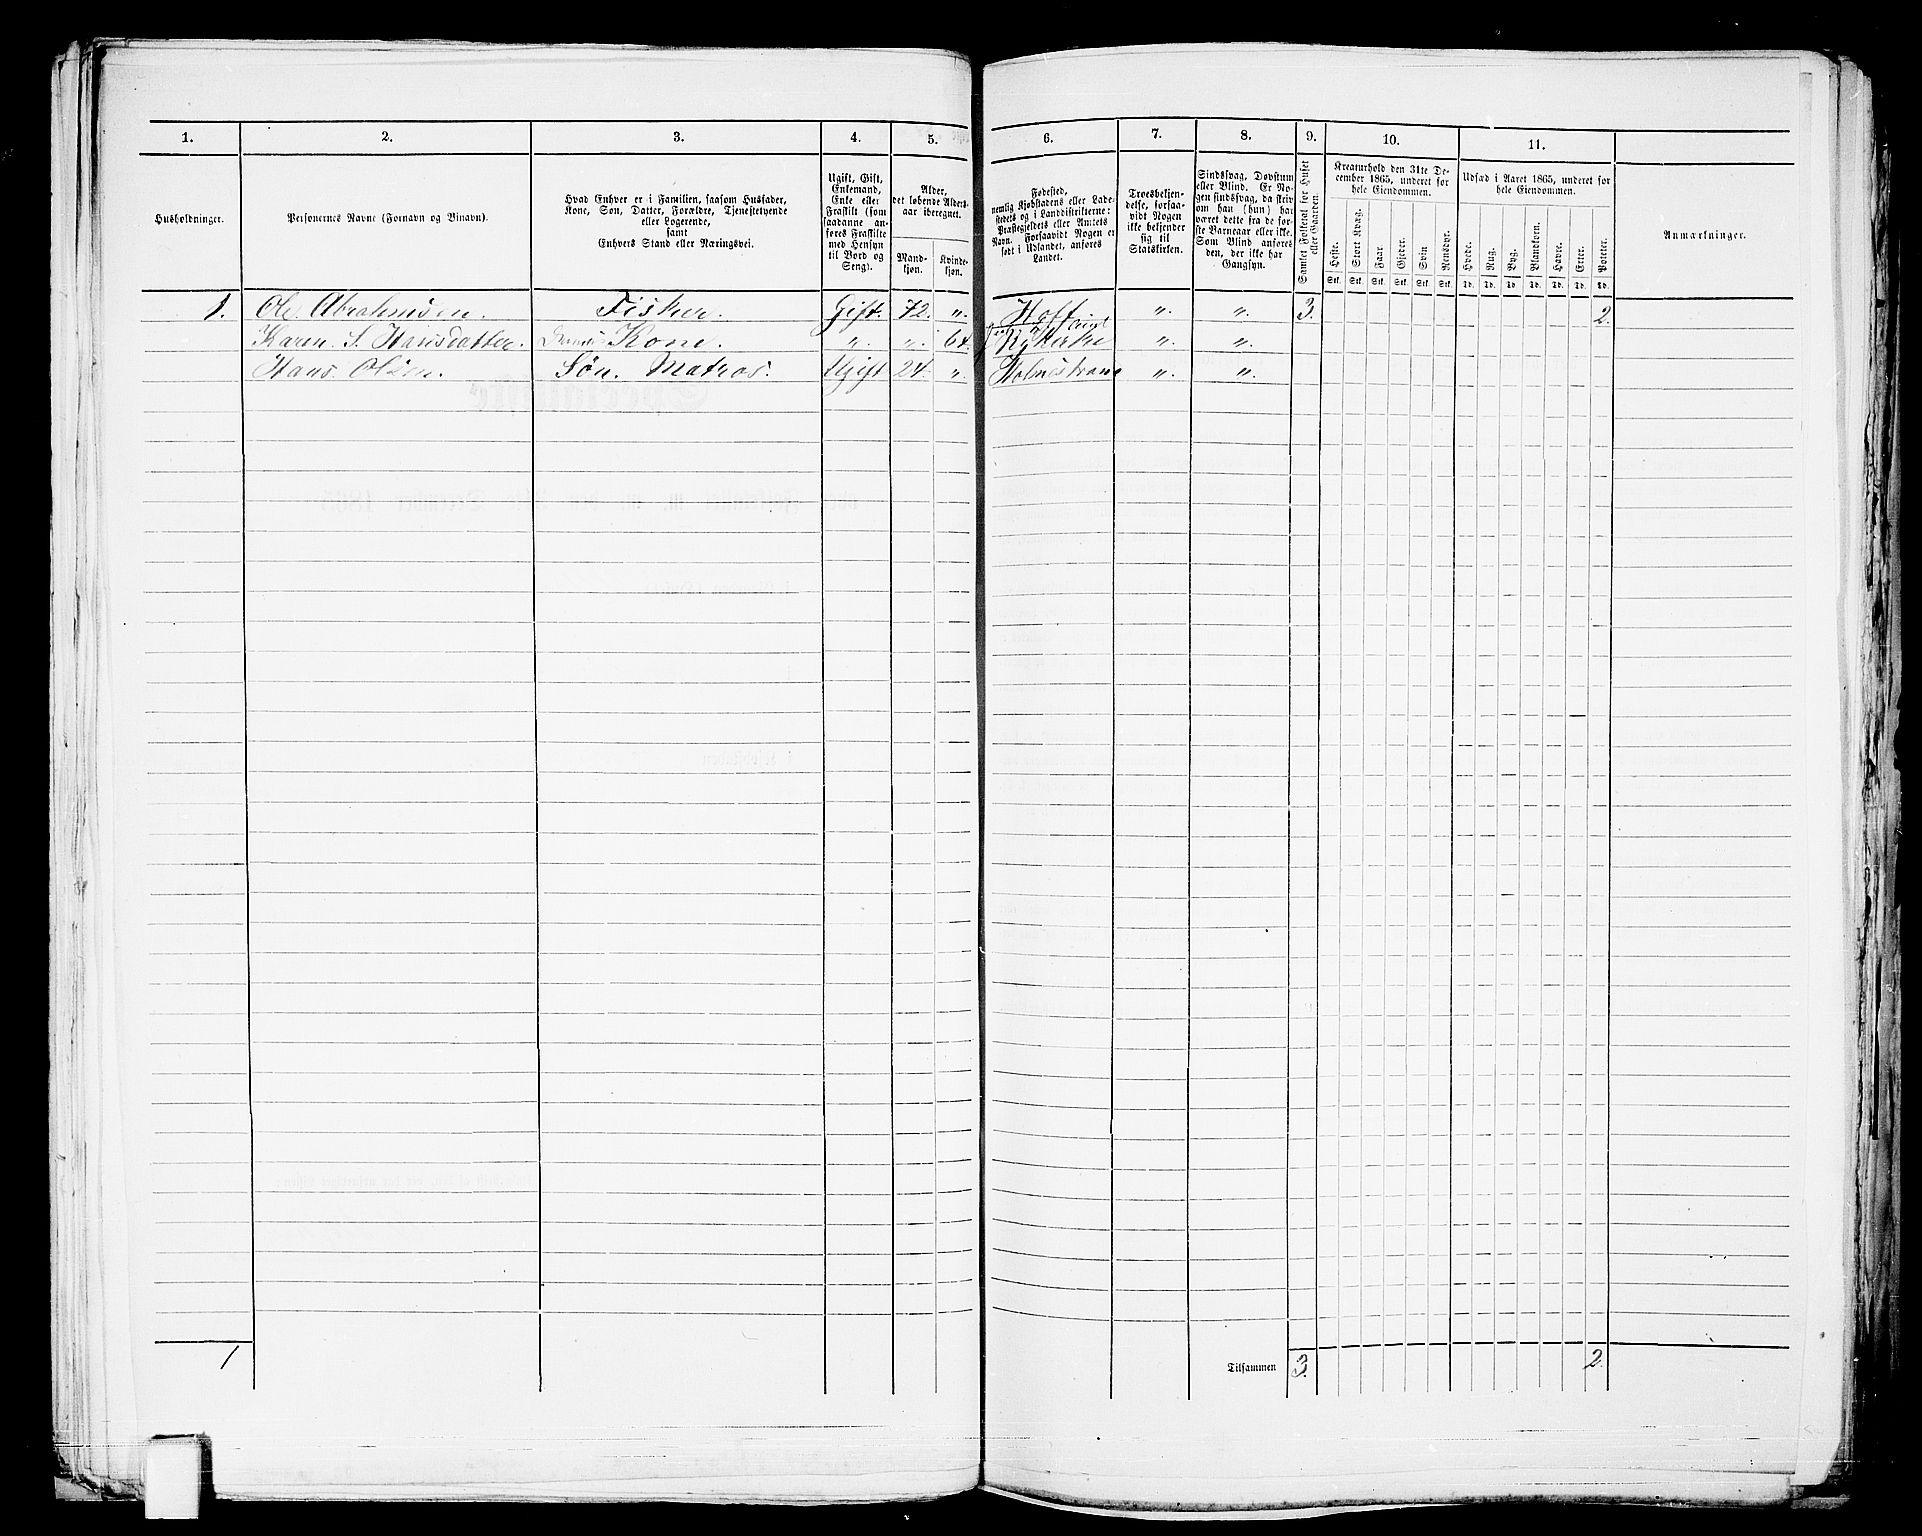 1. 2. 3. 4. 5. 6. 7. 8. 9. 10. 11.
Husholdninger.
Personernes Navne (Fornavn og Binavn).
Hvad Enhver er i Familien, saasom Husfader,
Kone, Søn, Datter, Forældre, Tjenestetyende
eller Logerende,
samt
Enhvers Stand eller Næringsvei.
Ugift, Gift,
Enkemand,
Enke eller
Fraskilt (som
saadanne an-
føres Fraskilte
med Hensyn
til Bord og
Seng).
Alder,
det løbende Alders-
aar iberegnet.
Mand-
kjøn.
Kvinde-
kjøn.
Fødested,
nemlig Kjøbstadens eller Lade-
stedets og i Landdistrikterne:
Præstegjeldets eller Amtets
Navn. Forsaavidt Nogen er
født i Udlandet, anføres
Landet.
Troesbekjen-
delse, forsaa-
vidt Nogen
ikke bekjender
sig til
Statskirken.
Sindssvag, Døvstum
eller Blind. Er No-
gen sindssvag, da skriv
om han (hun) har
været dette fra de før-
ste Barneaar eller ikke.
Som Blind anføres
den, der ikke har
Gangsyn.
Samlet Folketal for Huset
eller Gaarden.
Kreaturhold den 31te De-
cember 1865, underet for
hele Eiendommen.
Heste. Stort Kvæg. Faar. Gjeder. Svin Rensdyr.
Stk. Stk. Stk. Stk. Stk. Stk.
Udsæd i Aaret 1865, underet for
hele Eiendommen.
Hvede. Rug. Byg. Blandkorn. Havre. Erter. Poteter.
Td. Td. Td. Td. Td. Td. Td.
Anmærkninger.
1. Ole Abrahamsen. Fisker. Gift. 72. „ Hoff „ „ 3. 2.
Karen. S. Hansdatter. Kone. „ „ 64. Nykirke „ „
Hans Olsen. Søn. Matros. Ugift 24. „ Holmestrand „ „
1 Tilsammen 3. 2.